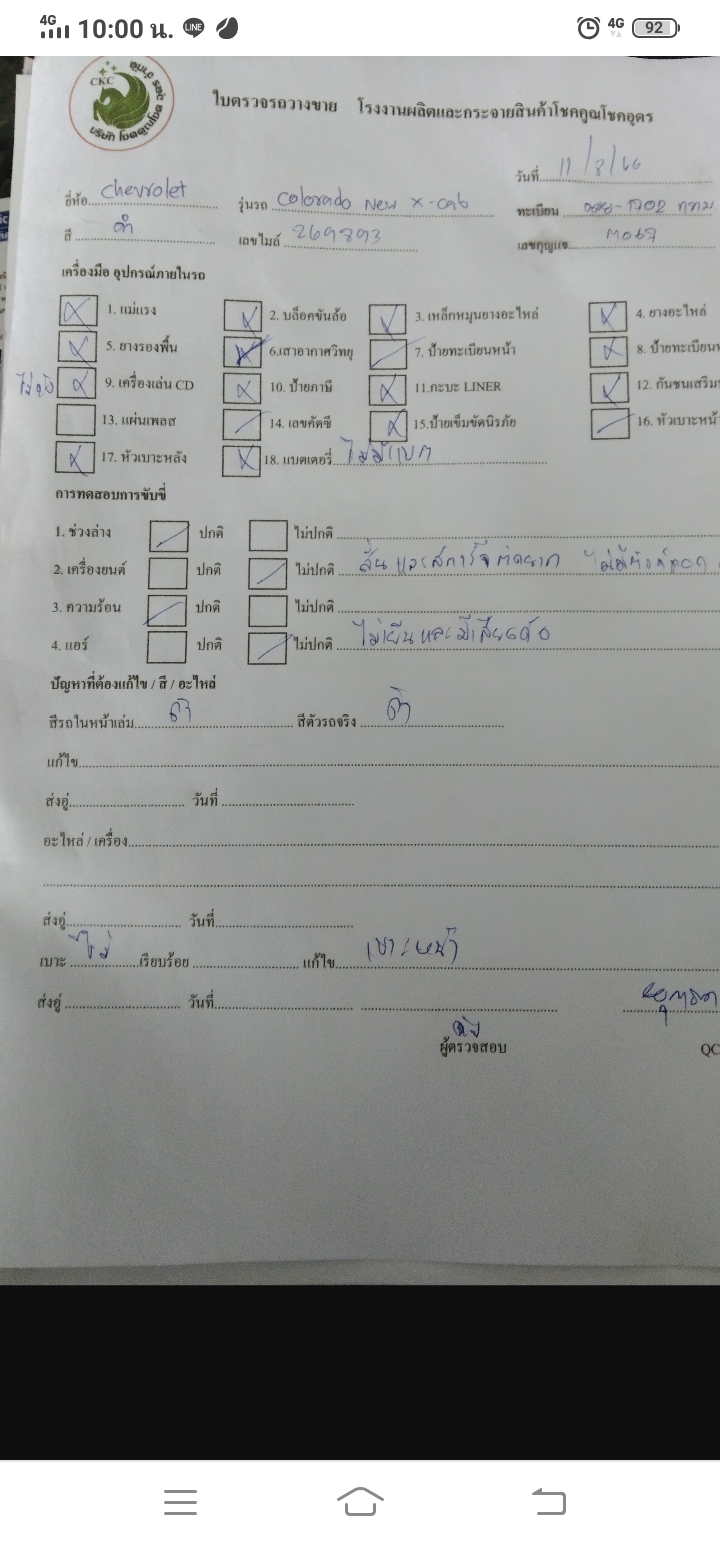 4G 10:00 น. LINE 4G 92
CKC
ใบตรวจรถวางขาย โรงงานผลิตและกระจายสินค้าโชคคูณโชคอุดร
วันที่ 11/8/66
ยี่ห้อ Chevrolet รุ่นรถ Colorado New X-cab ทะเบียน
สี ดำ เลขไมล์ 269893 เลขกุญแจ M067
เครื่องมือ อุปกรณ์ภายในรถ
1. แม่แรง 2. บล็อคขันล้อ 3. เหล็กหมุนยางอะไหล่ 4. ยางอะไหล่
5. ยางรองพื้น 6.เสาอากาศวิทยุ 7. ป้ายทะเบียนหน้า 8. ป้ายทะเบียน
9. เครื่องเล่น CD 10. ป้ายภาษี 11.กะบะ LINER 12. กันชนเสริม
13. แผ่นเพลส 14. เลขคัตซี 15.ป้ายเข็มขัดนิรภัย 16. หัวเบาะหน้
17. หัวเบาะหลัง 18. แบตเตอรี่ ไม่มีแบต
การทดสอบการขับขี่
1. ช่วงล่าง ปกติ ไม่ปกติ
2. เครื่องยนต์ ปกติ ไม่ปกติ สั่น และสตาร์จติดยาก
3. ความร้อน ปกติ ไม่ปกติ
4. แอร์ ปกติ ไม่ปกติ ไม่เย็น และมีเสียงดัง
ปัญหาที่ต้องแก้ไข / สี / อะไหล่
สีรถในหน้าเล่ม ดำ สีตัวรถจริง ดำ
แก้ไข
ส่งอู่ วันที่
อะไหล่ / เครื่อง
ส่งอู่ วันที่
เบาะ ไม่ เรียบร้อย แก้ไข เบาะหน้า
ส่งอู่ วันที่
ผู้ตรวจสอบ QC